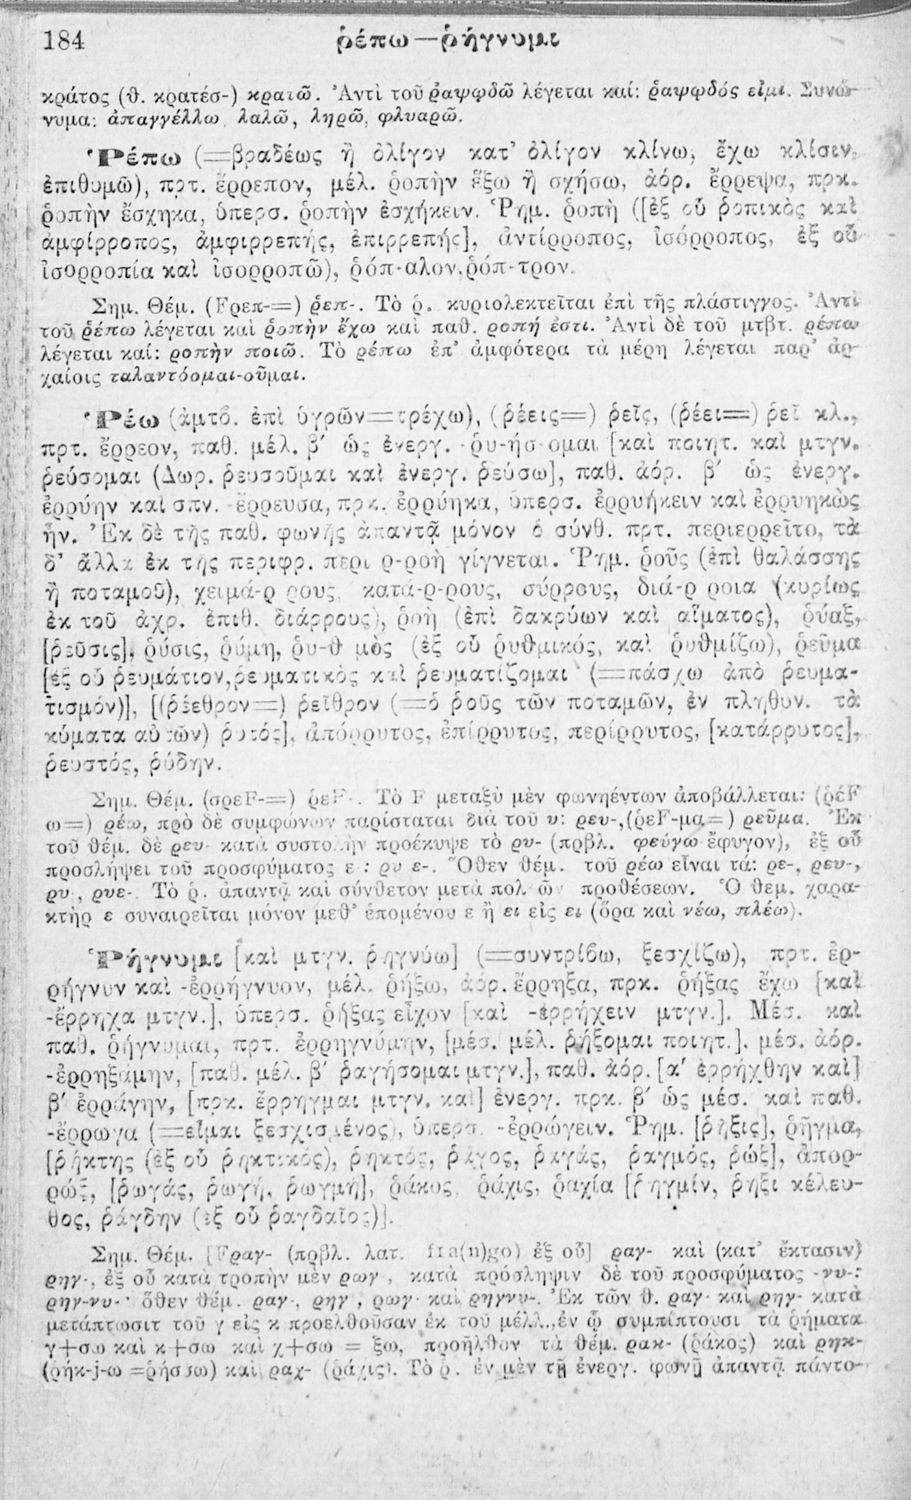 184
ῥέπω — ῥήγνυμι
κράτος (θ. κρατέσ-) κρατῶ. Ἀντὶ τοῦ ῥαψῳδῶ λέγεται καί: ῥαψῳδός εἰμι. Συνώ-
νυμα: ἀπαγγέλλω λαλῶ, ληρῶ, φλυαρῶ.
Ῥέπω (=βραδέως ἢ ὀλίγον κατ' ὀλίγον κλίνω, ἔχω κλίσιν,
ἐπιθυμῶ), πρτ. ἔρρεπον, μέλ. ῥοπὴν ἕξω ἢ σχήσω, ἀόρ. ἔρρεψα, πρκ.
ῥοπὴν ἔσχηκα, ὑπερσ. ῥοπὴν ἐσχήκειν. Ῥημ. ῥοπὴ ([ἐξ οὗ ῥοπικὸς καὶ
ἀμφίρροπος, ἀμφιρρεπής, ἐπιρρεπής], ἀντίρροπος, ἰσόρροπος, ἐξ οὗ
ἰσορροπία καὶ ἰσορροπῶ), ῥόπ-αλον, ῥόπ-τρον.
Σημ. Θέμ. (Fρεπ-=) ῥεπ-. Τὸ ῥ. κυριολεκτεῖται ἐπὶ τῆς πλάστιγγος. Ἀντὶ
τοῦ ῥέπω λέγεται καὶ ῥοπὴν ἔχω καὶ παθ. ροπή ἐστι. Ἀντὶ δὲ τοῦ μτβτ. ρέπω
λέγεται καί: ροπὴν ποιῶ. Τὸ ρέπω ἐπ' ἀμφότερα τὰ μέρη λέγεται παρ' ἀρ-
χαίοις ταλαντόομαι-οῦμαι.
Ῥέω (ἀμτβ. ἐπὶ ὑγρῶν=τρέχω), (ῥέεις=) ῥεῖς, (ῥέει=) ῥεῖ κλ.,
πρτ. ἔρρεον, παθ. μέλ. β' ὡς ἐνεργ. -ῥυ-ήσ-ομαι [καὶ ποιητ. καὶ μτγν.
ῥεύσομαι (Δωρ. ῥευσοῦμαι καὶ ἐνεργ. ῥεύσω], παθ. ἀόρ. β' ὡς ἐνεργ.
ἐρρύην καὶ σπν. -ἔρρευσα, πρκ. ἐρρύηκα, ὑπερσ. ἐρρυήκειν καὶ ἐρρυηκὼς
ἦν. Ἐκ δὲ τῆς παθ. φωνῆς ἀπαντᾷ μόνον ὁ σύνθ. πρτ. περιερρεῖτο, τὰ
δ' ἄλλα ἐκ τῆς περιφρ. περι-ρ-ροὴ γίγνεται. Ῥημ. ῥοῦς (ἐπὶ θαλάσσης
ἢ ποταμοῦ), χειμά-ρ-ρους, κατά-ρ-ρους, σύρρους, διά-ρ-ροια (κυρίως
ἐκ τοῦ ἀχρ. ἐπιθ. διάρρους), ῥοὴ (ἐπὶ δακρύων καὶ αἵματος), ῥύαξ,
[ῥεῦσις], ῥύσις, ῥύμη, ῥυ-θ-μὸς (ἐξ οὗ ῥυθμικός, καὶ ῥυθμίζω), ῥεῦμα
[ἐξ οὗ ῥευμάτιον, ρευματικὸς καὶ ῥευματίζομαι (=πάσχω ἀπὸ ῥευμα-
τισμόν)], [(ῥέεθρον=) ῥεῖθρον (=ὁ ῥοῦς τῶν ποταμῶν, ἐν πληθυν. τὰ
κύματα αὐτῶν) ῥυτός], ἀπόρρυτος, ἐπίρρυτος, περίρρυτος, [κατάρρυτος],
ῥευστός, ῥύδην.
Σημ. Θέμ. (σρεF-=) ῥεF-. Τὸ F μεταξὺ μὲν φωνηέντων ἀποβάλλεται: (ῥέF
ω=) ρέω, πρὸ δὲ συμφώνων παρίσταται διὰ τοῦ υ: ρευ-, (ῥεF-μα=) ρεῦμα. Ἐκ
τοῦ θέμ. δὲ ρευ- κατὰ συστολὴν προέκυψε τὸ ρυ- (πρβλ. φεύγω ἔφυγον), ἐξ οὗ
προσλήψει τοῦ προσφύματος ε: ρυ-ε-. Ὅθεν θέμ. τοῦ ρέω εἶναι τά: ρε-, ρευ-,
ρυ-, ρυε-. Τὸ ῥ. ἀπαντᾷ καὶ σύνθετον μετὰ πολλῶν προθέσεων. Ὁ θεμ. χαρα-
κτὴρ ε συναιρεῖται μόνον μεθ' ἑπομένου ε ἢ ει εἰς ει (ὅρα καὶ νέω, πλέω).
Ῥήγνυμι [καὶ μτγν. ῥηγνύω] (=συντρίβω, ξεσχίζω), πρτ. ἐρ-
ρήγνυν καὶ -ἐρρήγνυον, μέλ. ῥήξω, ἀόρ. ἔρρηξα, πρκ. ῥήξας ἔχω [καὶ
-ἔρρηχα μτγν.], ὑπερσ. ῥήξας εἶχον [καὶ -ἐρρήχειν μτγν.]. Μέσ. καὶ
παθ. ῥήγνυμαι, πρτ. ἐρρηγνύμην, [μέσ. μέλ. ῥήξομαι ποιητ.], μέσ. ἀόρ.
-ἐρρηξάμην, [παθ. μέλ. β' ῥαγήσομαι μτγν.], παθ. ἀόρ. [α' ἐρρήχθην καὶ]
β' ἐρράγην, [πρκ. ἔρρηγμαι μτγν. καὶ] ἐνεργ. πρκ. β' ὡς μέσ. καὶ παθ.
-ἔρρωγα (=εἶμαι ξεσχισμένος), ὑπερσ. -ἐρρώγειν. Ῥημ. [ῥῆξις], ῥῆγμα,
[ῥήκτης (ἐξ οὗ ῥηκτικός), ῥηκτός, ῥάγος, ῥαγάς, ῥαγμός, ῥώξ], ἀπορ-
ρώξ, [ῥωγάς, ῥωγή, ῥωγμή], ῥάκος, ῥάχις, ῥαχία [ῥηγμίν, ῥηξικέλευ-
θος, ῥάγδην (ἐξ οὗ ῥαγδαῖος)].
Σημ. Θέμ. [Fραγ- (πρβλ. λατ. fra(n)go) ἐξ οὗ] ραγ- καὶ (κατ' ἔκτασιν)
ρηγ-, ἐξ οὗ κατὰ τροπὴν μὲν ρωγ-, κατὰ πρόσληψιν δὲ τοῦ προσφύματος -νυ-:
ρηγ-νυ-· ὅθεν θέμ. ραγ-, ρηγ-, ρωγ- καὶ ρηγνυ-. Ἐκ τῶν θ. ραγ- καὶ ρηγ- κατὰ
μετάπτωσιτ τοῦ γ εἰς κ προελθοῦσαν ἐκ τοῦ μέλλ., ἐν ᾧ συμπίπτουσι τὰ ῥήματα
γ+σω καὶ κ+σω καὶ χ+σω = ξω, προῆλθον τὰ θέμ. ρακ- (ῥάκος) καὶ ρηκ-
(ρήκ-j-ω =ῥήσσω) καὶ ραχ- (ῥάχις). Τὸ ῥ. ἐν μὲν τῇ ἐνεργ. φωνῇ ἀπαντᾷ πάντο-